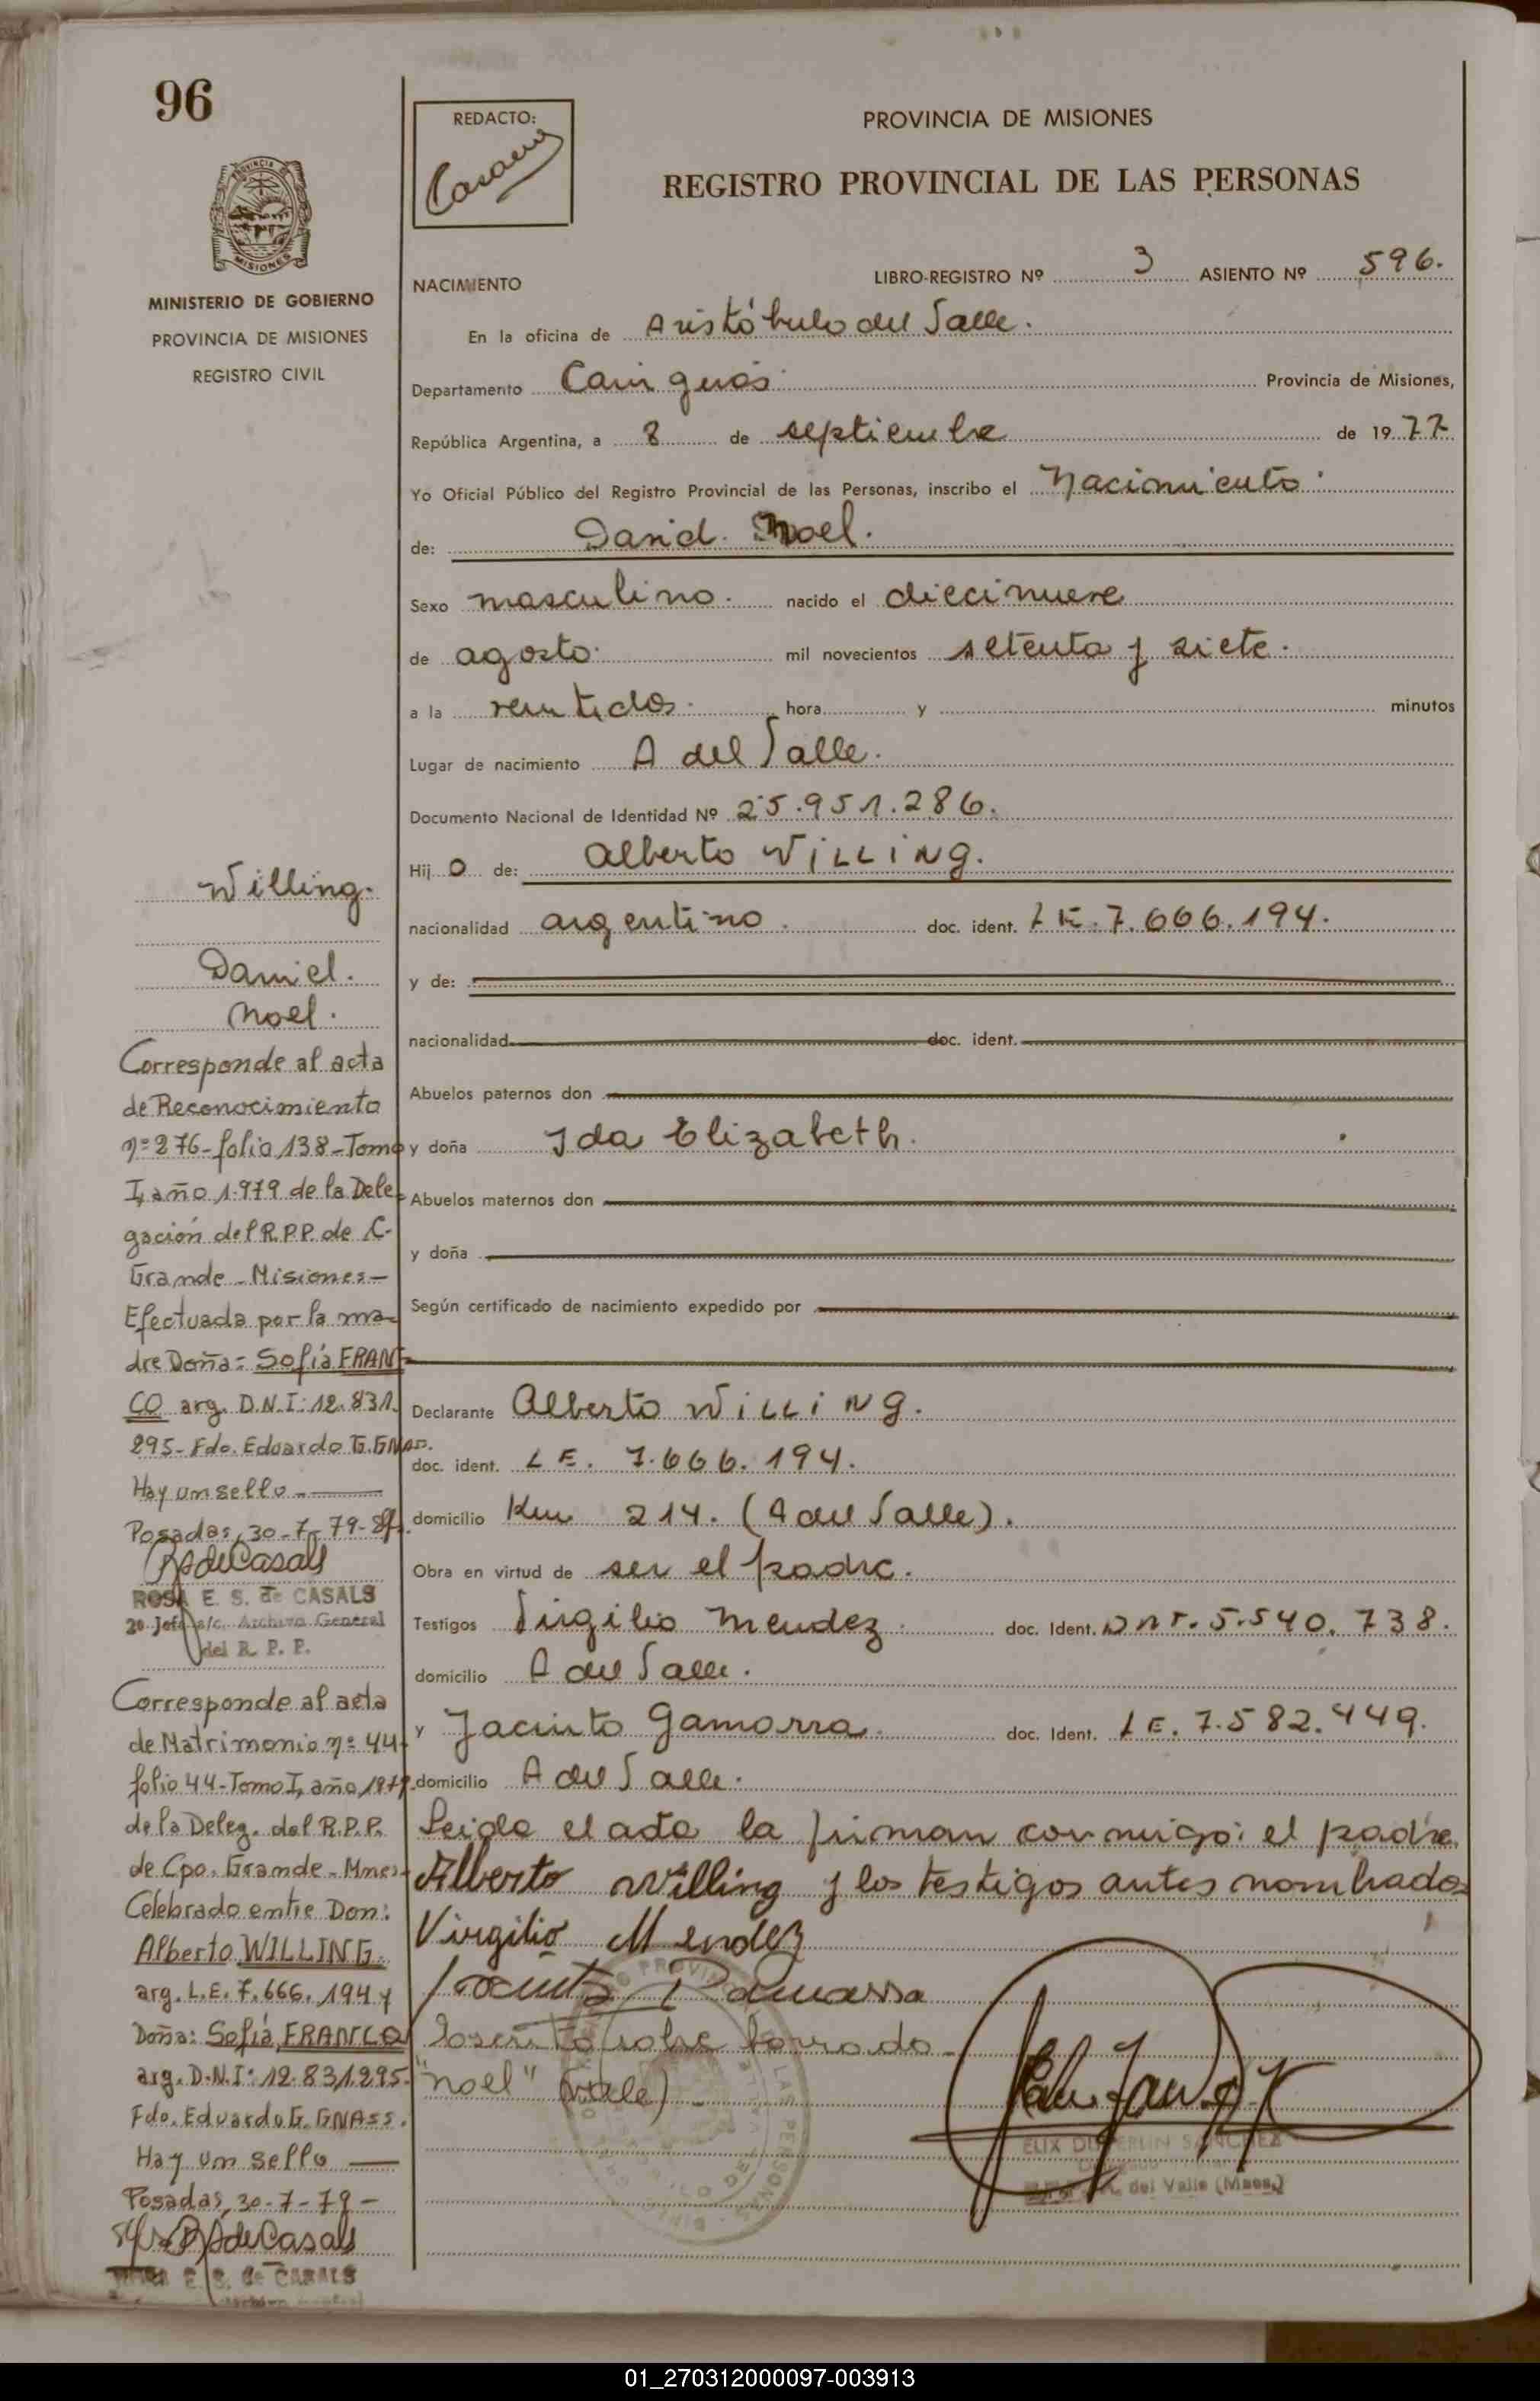 96
MINISTERIO DE GOBIERNO
PROVINCIA DE MISIONES
REGISTRO CIVIL
Willing.
Daniel.
Noel.
Corresponde al acta
de Reconocimiento
nº 276-folio 138-Tomo
I, año 1.979 de la Dele-
gación del R.P.P. de C.
Grande - Misiones -
Efectuada por la ma-
dre Doña: Sofía FRAN-
CO arg. D.N.I: 12.831.
295- Fdo. Eduardo G. GNASS.
Hay un sello -
Posadas, 30-7-79-
RSdeCasals
ROSA E. S. de CASALS
2º Jefe a/c. Archivo General
del R. P. P.
Corresponde al acta
de Matrimonio nº 44-
folio 44-Tomo I, año 1979.
de la Deleg. del R.P.P.
de Cpo. Grande - Mnes-
Celebrado entre Don:
Alberto WILLING.
arg. L.E. 7.666.194 y
Doña: Sofía FRANCO
arg. D.N.I: 12.831.295-
Fdo. Eduardo G. GNASS.
Hay un sello
Posadas, 30-7-79-
RSdeCasals
E. S. de CASALS
REDACTO:
PROVINCIA DE MISIONES
REGISTRO PROVINCIAL DE LAS PERSONAS
NACIMIENTO LIBRO-REGISTRO Nº 3 ASIENTO Nº 596.
En la oficina de Aristóbulo del Valle.
Departamento Cainguás Provincia de Misiones,
República Argentina, a 8 de septiembre de 1977
Yo Oficial Público del Registro Provincial de las Personas, inscribo el Nacimiento
de: Daniel Noel.
Sexo masculino. nacido el diecinueve
de agosto mil novecientos setenta y siete.
a la veintidos hora y minutos
Lugar de nacimiento A del Valle.
Documento Nacional de Identidad Nº 25.951.286.
Hijo de: Alberto WiLLiNg.
nacionalidad argentino. doc. ident. LE. 7.666.194.
y de:
nacionalidad doc. ident.
Abuelos paternos don
y doña Ida Elizabeth.
Abuelos maternos don
y doña
Según certificado de nacimiento expedido por
Declarante Alberto WiLLiNg.
doc. ident. LE. 7.666.194.
domicilio Km 214. (A del Valle).
Obra en virtud de ser el padre.
Testigos Virgilio Mendez doc. Ident. DNI. 5.540.738.
domicilio A del Valle.
y Jacinto Gamorra doc. Ident. LE. 7.582.449.
domicilio A del Valle.
Leida el acta la firman conmigo: el padre
Alberto Willing y los testigos antes nombrados
Virgilio Mendez
Jacinto Gamarra
Escrito sobre borrado
"Noel" (vale)
del Valle (Mnes.)
01_270312000097-003913